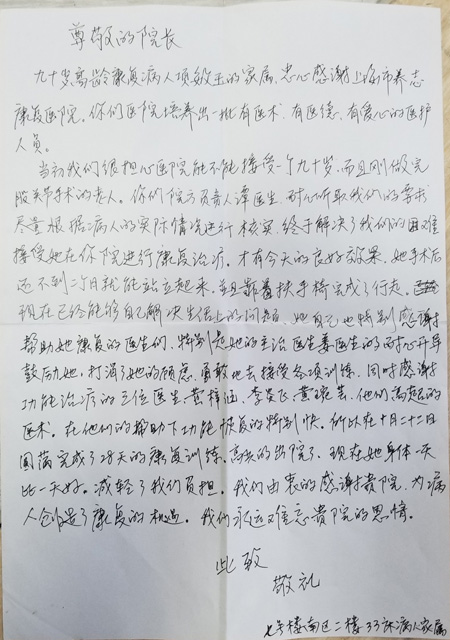 尊敬的院长
九十岁高龄康复病人项效玉的家属,忠心感谢上海市养志
康复医院。你们医院培养出一批有医术、有医德、有爱心的医护
人员。
当初我们很担心医院能不能接受一个九十岁,而且刚做完
股关节手术的老人。你们院方负责人谭医生,耐心听取我们的要求
尽量根据病人的实际情况进行核实,终于解决了我们的困难
接受她在你院进行康复治疗。才有今天的良好效果,她手术后
还不到二个月就能站立起来,并且靠着扶手椅完成了行走。
现在已经能够自己解决生活上的问题,她自己也特别感谢
帮助她康复的医生们,特别是她的主治医生姜医生的耐心开导
鼓励她,打消了她的顾虑,勇敢地去接受各项训练,同时感谢
功能治疗的三位医生,黄梓涵、李奕飞、黄琬芸,他们高超的
医术。在他们的帮助下功能恢复的特别快。所以在十月二十二日
圆满完成了28天的康复训练,高兴的出院了,现在她身体一天
比一天好。减轻了我们负担。我们由衷的感谢贵院,为病
人创造了康复的机遇。我们永远难忘贵院的恩情。
此致
敬礼
七号楼南区二楼33床病人家属